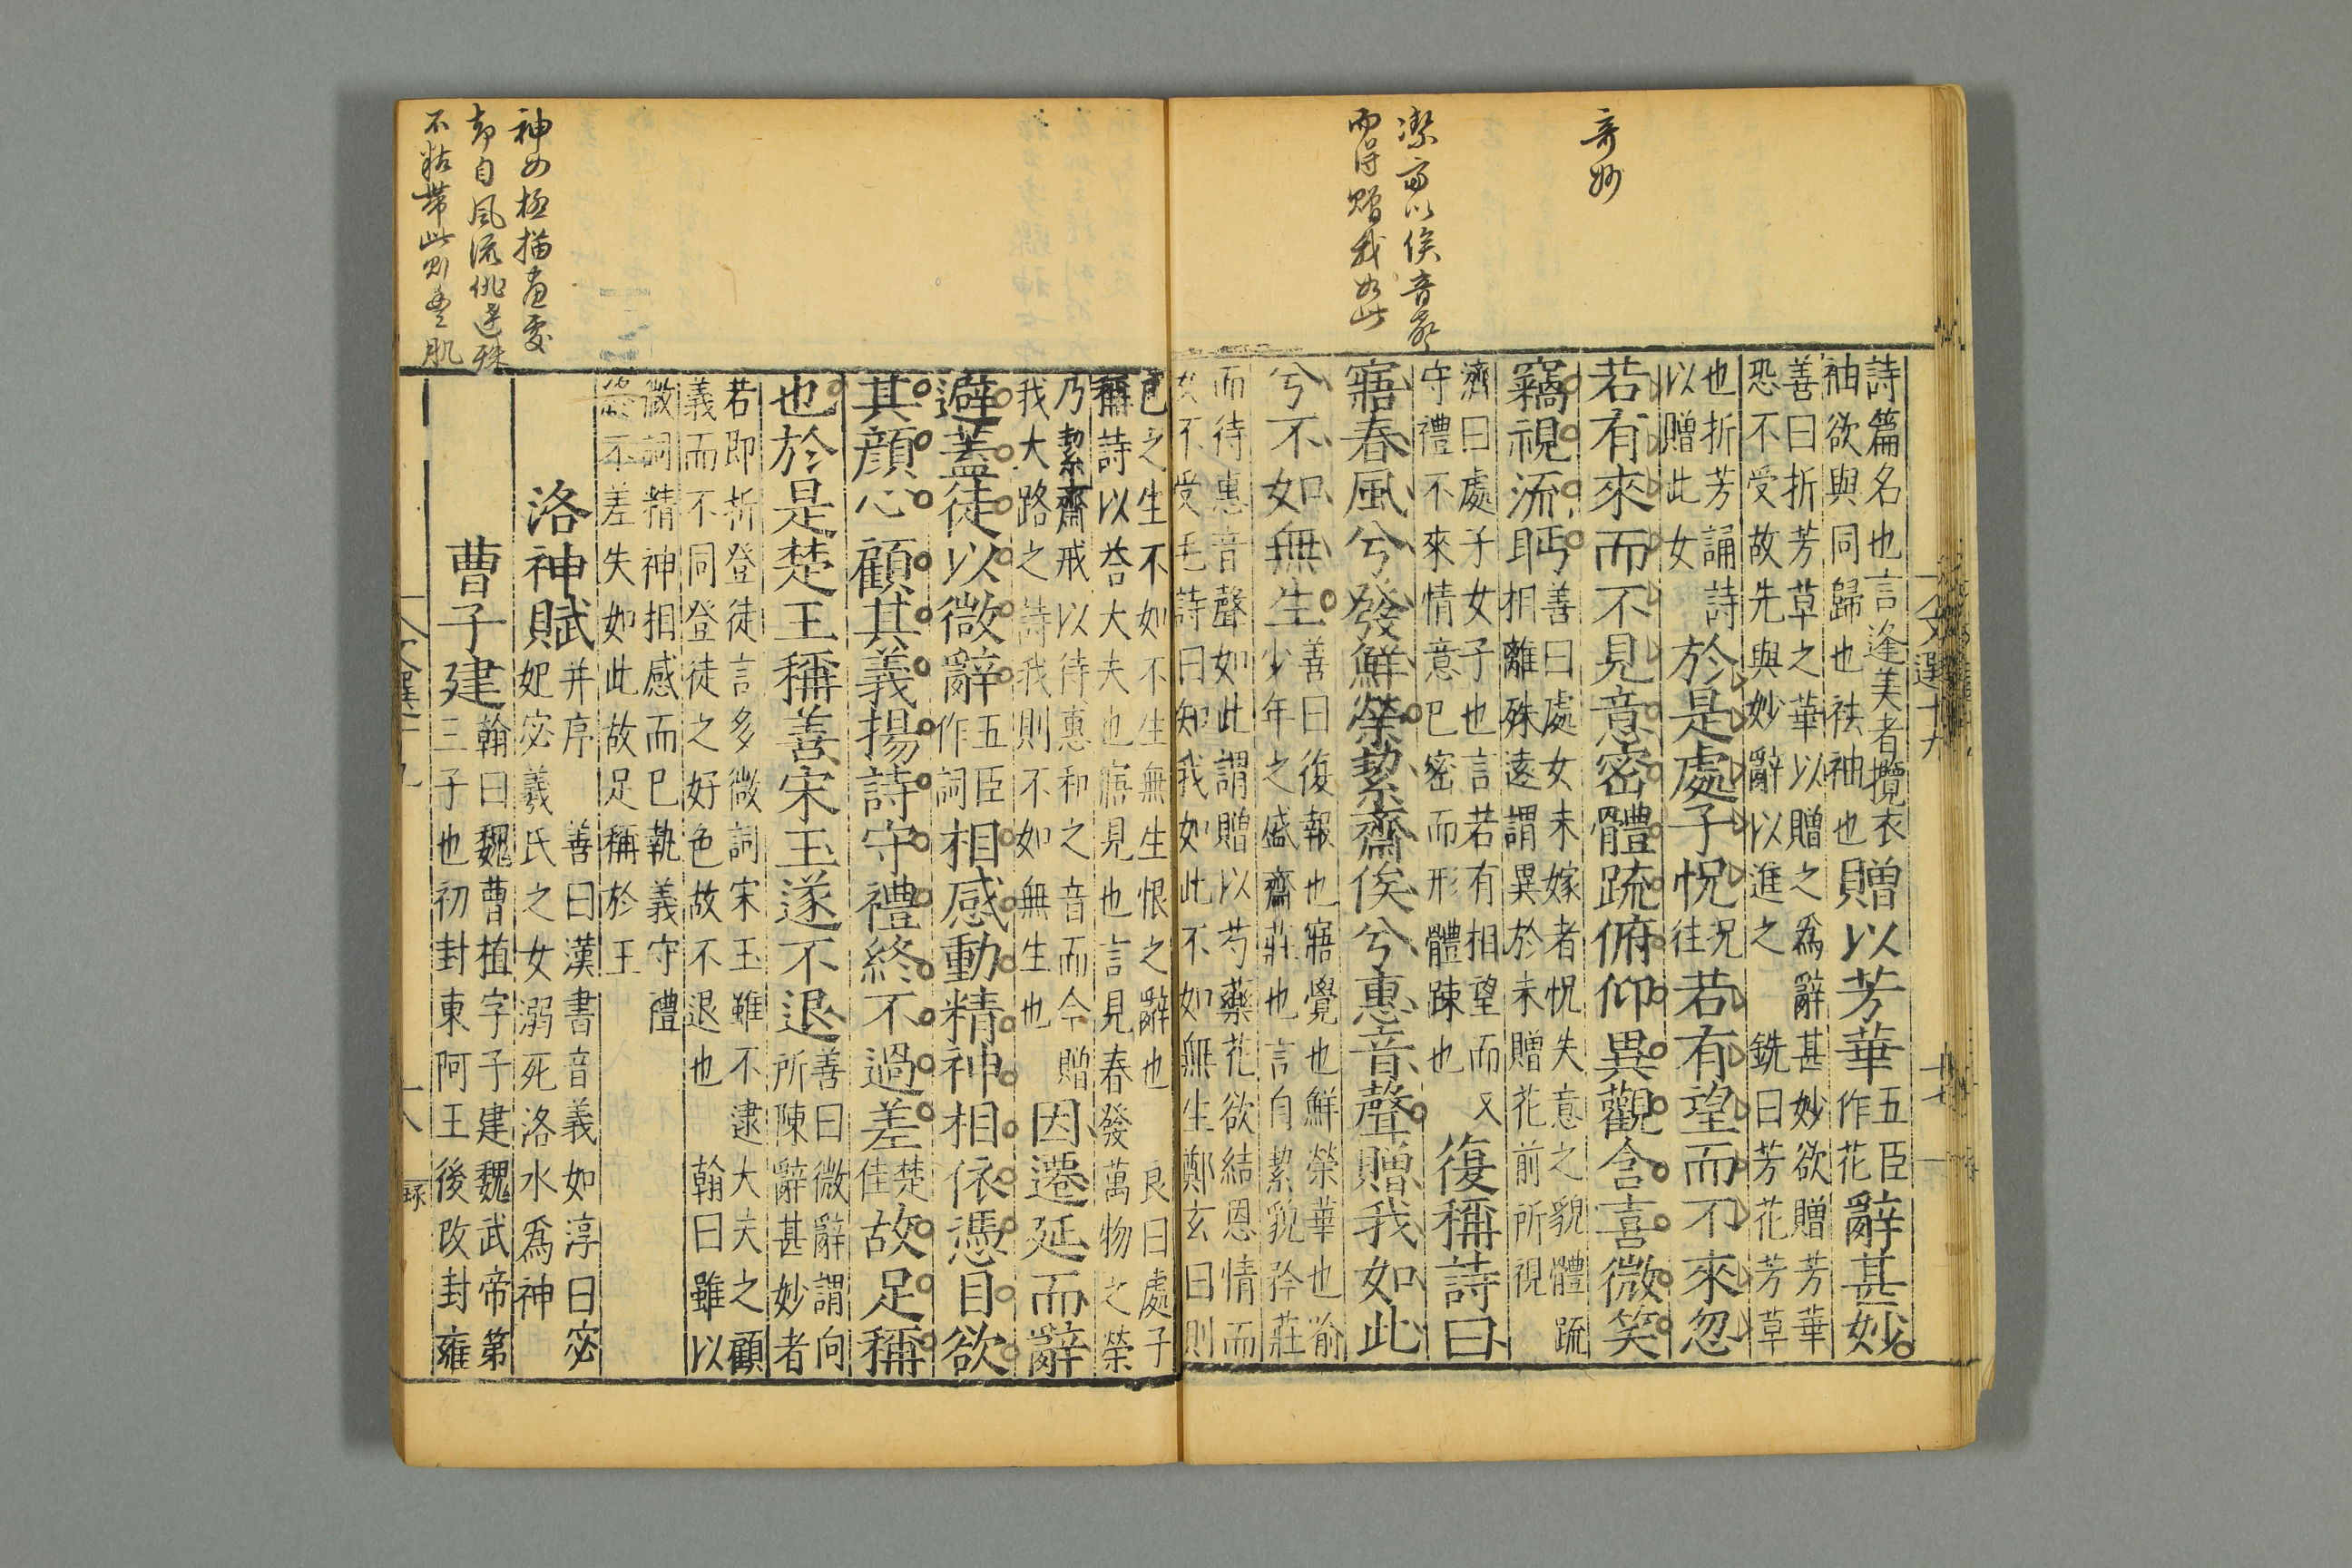 奇妙
潔齋以俟音聲
而詩贈我如此
詩篇名也言逢美者攬衣
袖欲與同歸也袪袖也
贈以芳華
五臣
作花
辭甚妙
善曰折芳草之華以贈之爲辭甚妙欲贈芳華
恐不受故先與妙辭以進之 銑曰芳花芳草
也折芳誦詩
以贈此女
於是處子怳
況
往
若有望而不來忽
若有來而不見意密體疏俯仰異觀含喜微笑
竊視流眄
善曰處女未嫁者怳失意之貌體疏
相離殊遠謂異於未贈花前所視
濟曰處子女子也言若有相望而又
守禮不來情意已密而形體踈也
復稱詩曰
寤春風兮發鮮榮絜齋俟兮惠音聲贈我如此
兮不如無生
善曰復報也寤覺也鮮榮華也喻
少年之盛齋莊也言自絜貌矜莊
而待惠音聲如此謂贈以芍藥花欲結恩情而
女不受毛詩曰知我如此不如無生鄭玄曰則
已之生不如不生無生恨之辭也 良曰處子
稱詩以荅大夫也寤見也言見春發萬物之榮
乃絜齋戒以待惠和之音而今贈
我大路之詩我則不如無生也
因遷延而辭
避蓋徒以微辭
五臣
作詞
相感動精神相依憑目欲
其顔心顧其義揚詩守禮終不過差
楚
佳
故足稱
也於是楚王稱善宋玉遂不退
善曰微辭謂向
所陳辭甚妙者
若即折登徒言多微詞宋玉雖不逮大夫之顧
義而不同登徒之好色故不退也 翰曰雖以
微詞精神相感而已執義守禮
終不差失如此故足稱於王
洛神賦
并序 善曰漢書音義如淳曰宓
妃宓羲氏之女溺死洛水爲神
曹子建
翰曰魏曹植字子建魏武帝第
三子也初封東阿王後改封雍
神女極描畫處
却自風流佻逹殊
不粘帶此則豊肌